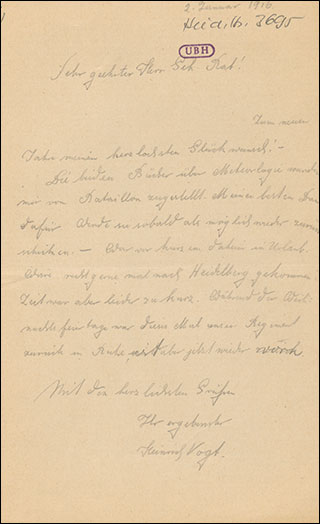 2. Januar 1916
Heid. Hs. 3695
UBH
Sehr geehrter Herr Geh. Rat!
Zum neuen
Jahre meinen herzlichsten Glückwunsch! –
Die beiden Bücher über Meteorologie wurden
mir vom Bataillon zugestellt. Meinen besten Dank
dafür. Werde sie sobald als möglich wieder zurück
schicken. – War vor kurzem daheim in Urlaub.
Wäre recht gerne mal nach Heidelberg gekommen.
Zeit war aber leider zu kurz. Während der Weih
nachtsfeiertage war dieses Mal unser Regiment
zurück in Ruhe, ist aber jetzt wieder
Mit den herzlichsten Grüßen
Ihr ergebenster
Heinrich Vogt.